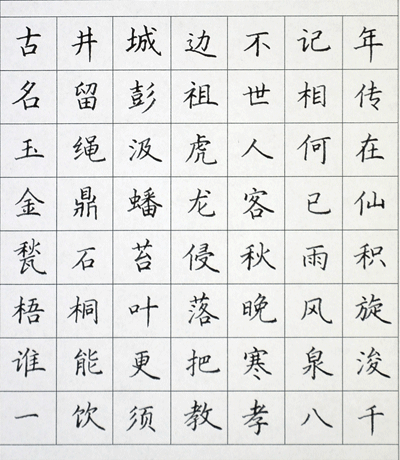 古井城边不记年
名留彭祖世相传
玉绳汲虎人何在
金鼎蟠龙客已仙
甃石苔侵秋雨积
梧桐叶落晚风旋
谁能更把寒泉浚
一饮须教孝八千